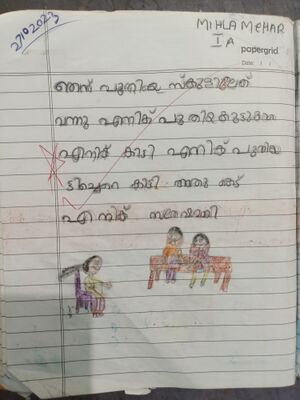 27102023
MIHLA MEHAR
I A
papergrid
Date: / /
ഞാൻ പുതിയ സ്കൂളിലേക്
വന്നു എനിക് പുതിയ കൂട്ടുകാരെ
എനിക് കിട്ടി എനിക് പുതിയ
ടീച്ചറെ കിട്ടി അതു കൊണ്ട്
എനിക് സന്തോഷമായി